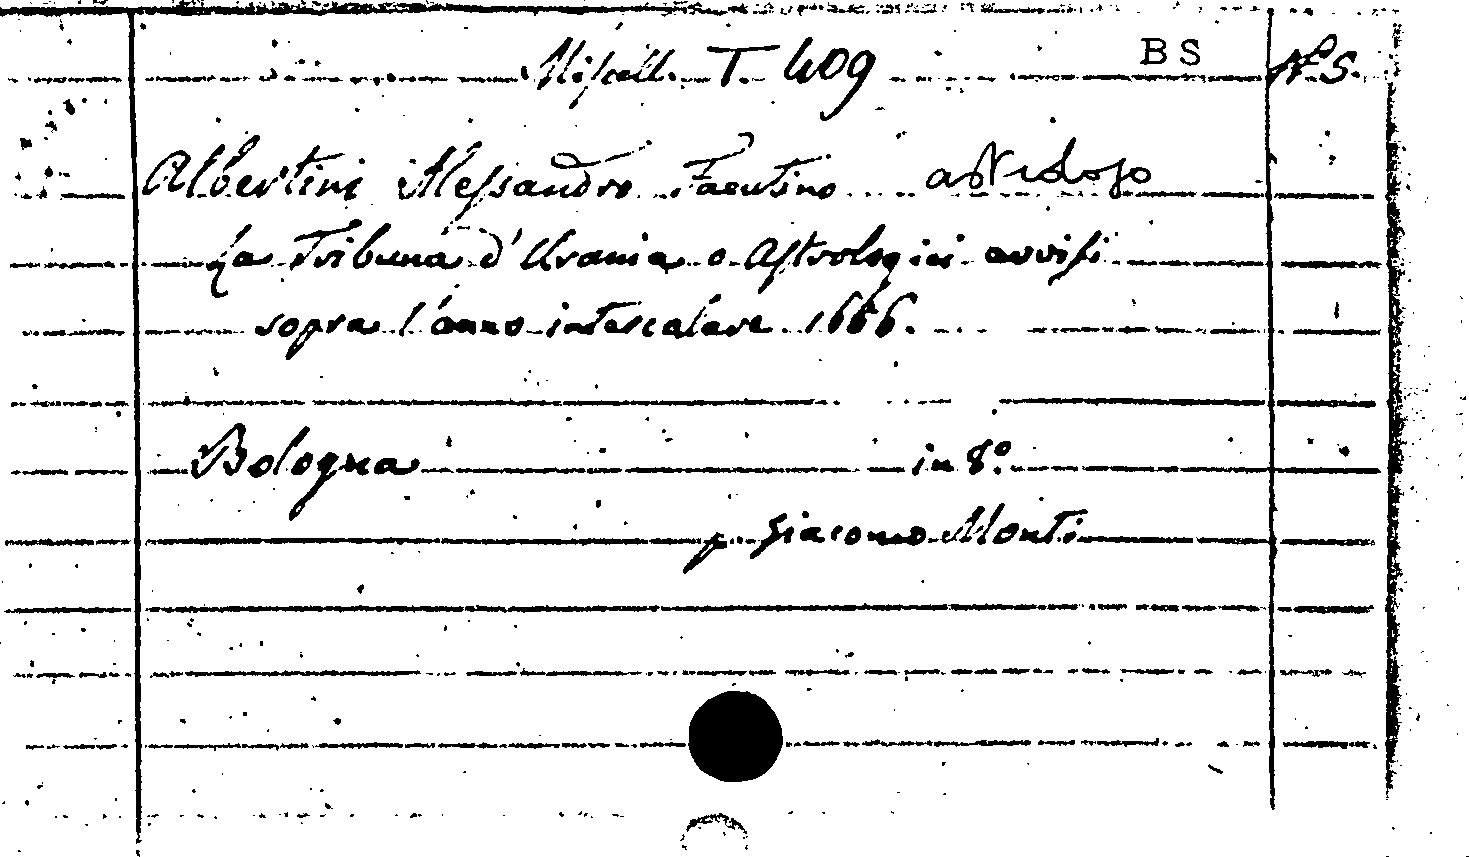 Miscell. T. 409 BS N° 5.
Albertini Alessandro Faentino
La Tribuna d'Urania o Astrologici avvisi
sopra l'anno intercalare 1666.
Bologna in 8°.
p. Giacomo Monti